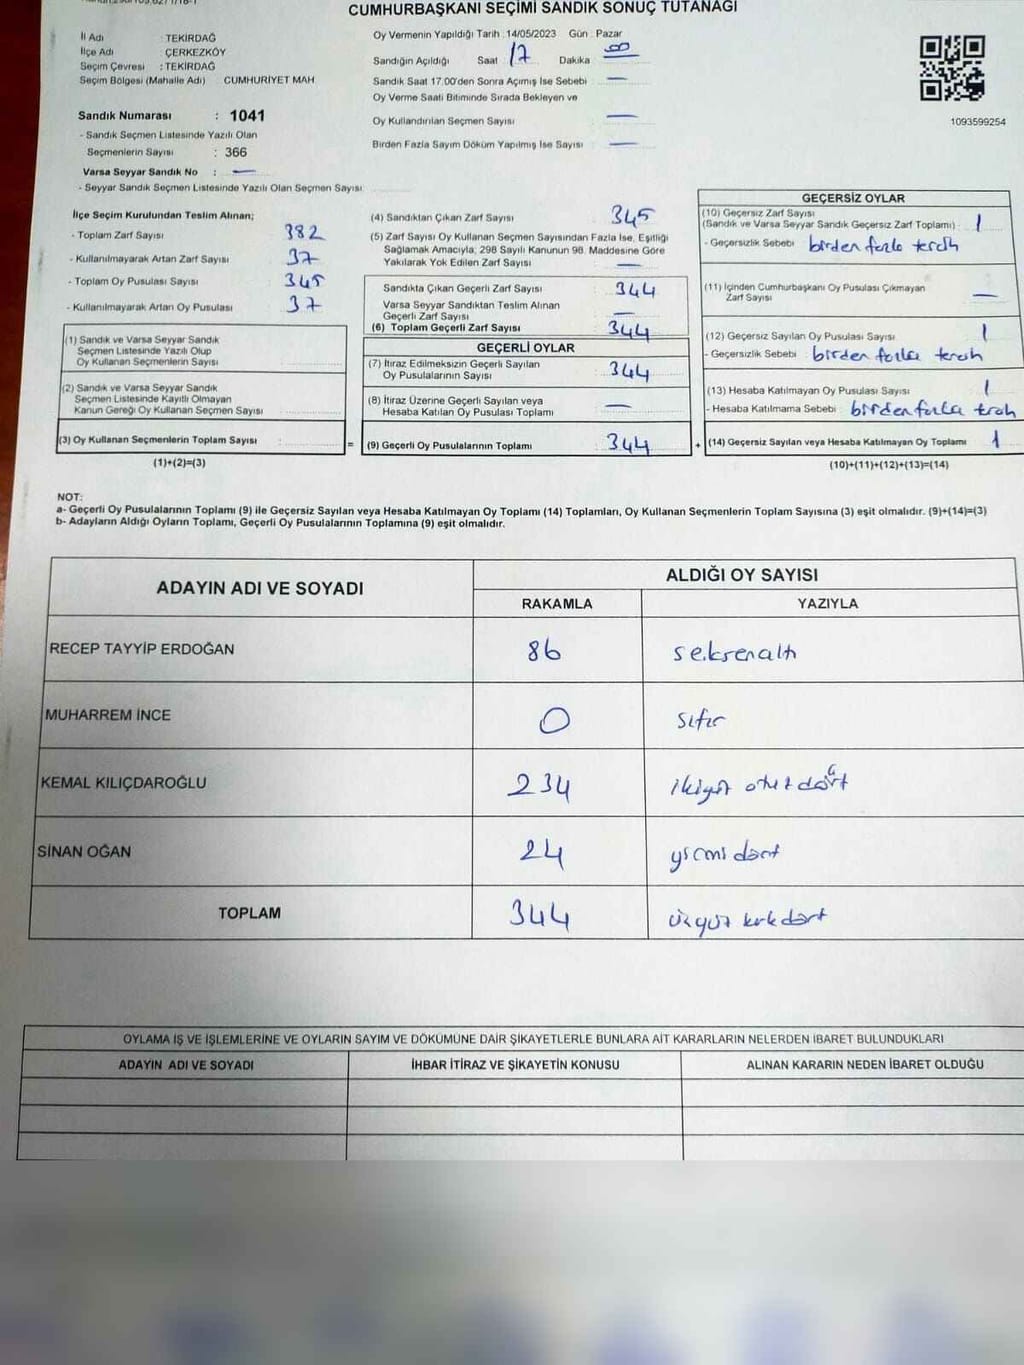 CUMHURBAŞKANI SEÇİMİ SANDIK SONUÇ TUTANAĞI
İl Adı : TEKİRDAĞ
İlçe Adı : ÇERKEZKÖY
Seçim Çevresi : TEKİRDAĞ
Seçim Bölgesi (Mahalle Adı) CUMHURİYET MAH
Sandık Numarası : 1041
- Sandık Seçmen Listesinde Yazılı Olan
Seçmenlerin Sayısı : 366
Varsa Seyyar Sandık No : —
- Seyyar Sandık Seçmen Listesinde Yazılı Olan Seçmen Sayısı
Oy Vermenin Yapıldığı Tarih : 14/05/2023 Gün : Pazar
Sandığın Açıldığı Saat 17 Dakika 00
Sandık Saat 17.00'den Sonra Açımış İse Sebebi —
Oy Verme Saati Bitiminde Sırada Bekleyen ve
Oy Kullandırılan Seçmen Sayısı —
Birden Fazla Sayım Döküm Yapılmış İse Sayısı —
1093599254
İlçe Seçim Kurulundan Teslim Alınan;
- Toplam Zarf Sayısı 382
- Kullanılmayarak Artan Zarf Sayısı 37
- Toplam Oy Pusulası Sayısı 345
- Kullanılmayarak Artan Oy Pusulası 37
(1) Sandık ve Varsa Seyyar Sandık
Seçmen Listesinde Yazılı Olup
Oy Kullanan Seçmenlerin Sayısı
(2) Sandık ve Varsa Seyyar Sandık
Seçmen Listesinde Kayıtlı Olmayan
Kanun Gereği Oy Kullanan Seçmen Sayısı
(3) Oy Kullanan Seçmenlerin Toplam Sayısı =
(1)+(2)=(3)
(4) Sandıktan Çıkan Zarf Sayısı 345
(5) Zarf Sayısı Oy Kullanan Seçmen Sayısından Fazla İse, Eşitliği
Sağlamak Amacıyla, 298 Sayılı Kanunun 98. Maddesine Göre
Yakılarak Yok Edilen Zarf Sayısı —
Sandıkta Çıkan Geçerli Zarf Sayısı 344
Varsa Seyyar Sandıktan Teslim Alınan
Geçerli Zarf Sayısı —
(6) Toplam Geçerli Zarf Sayısı 344
GEÇERLİ OYLAR
(7) İtiraz Edilmeksizin Geçerli Sayılan
Oy Pusulalarının Sayısı 344
(8) İtiraz Üzerine Geçerli Sayılan veya
Hesaba Katılan Oy Pusulası Toplamı —
(9) Geçerli Oy Pusulalarının Toplamı 344 +
GEÇERSİZ OYLAR
(10) Geçersiz Zarf Sayısı
(Sandık ve Varsa Seyyar Sandık Geçersiz Zarf Toplamı) : 1
- Geçersizlik Sebebi birden fazla tercih
(11) İçinden Cumhurbaşkanı Oy Pusulası Çıkmayan
Zarf Sayısı —
(12) Geçersiz Sayılan Oy Pusulası Sayısı 1
- Geçersizlik Sebebi : birden fazla tercih
(13) Hesaba Katılmayan Oy Pusulası Sayısı 1
- Hesaba Katılmama Sebebi : birden fazla tercih
(14) Geçersiz Sayılan veya Hesaba Katılmayan Oy Toplamı 1
(10)+(11)+(12)+(13)=(14)
NOT:
a- Geçerli Oy Pusulalarının Toplamı (9) ile Geçersiz Sayılan veya Hesaba Katılmayan Oy Toplamı (14) Toplamları, Oy Kullanan Seçmenlerin Toplam Sayısına (3) eşit olmalıdır. (9)+(14)=(3)
b- Adayların Aldığı Oyların Toplamı, Geçerli Oy Pusulalarının Toplamına (9) eşit olmalıdır.
ADAYIN ADI VE SOYADI
ALDIĞI OY SAYISI
RAKAMLA YAZIYLA
RECEP TAYYİP ERDOĞAN 86 seksenaltı
MUHARREM İNCE 0 sıfır
KEMAL KILIÇDAROĞLU 234 ikiyüz otuzdört
SİNAN OĞAN 24 yirmi dört
TOPLAM 344 üçyüz kırkdört
OYLAMA İŞ VE İŞLEMLERİNE VE OYLARIN SAYIM VE DÖKÜMÜNE DAİR ŞİKAYETLERLE BUNLARA AİT KARARLARIN NELERDEN İBARET BULUNDUKLARI
ADAYIN ADI VE SOYADI İHBAR İTİRAZ VE ŞİKAYETİN KONUSU ALINAN KARARIN NEDEN İBARET OLDUĞU